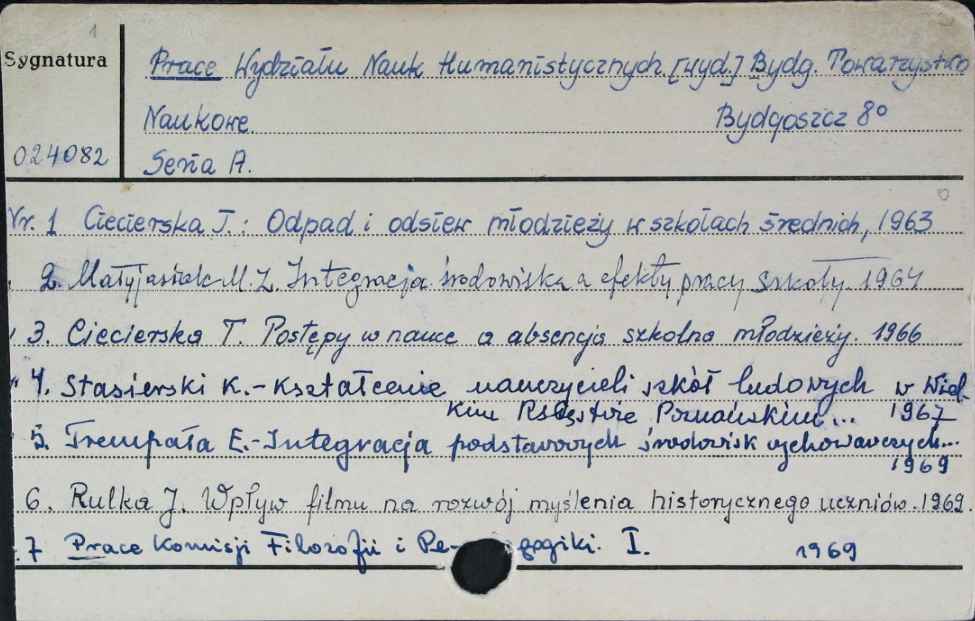 1
Sygnatura
Prace Wydziału Nauk Humanistycznych. [wyd.] Bydg. Towarzystwo
Naukowe. Bydgoszcz 8°
024082
Seria A.
Nr. 1 Ciecierska J.: Odpad i odsiew młodzieży w szkołach średnich, 1963
2. Matyjasiak M. Z. Integracja środowiska a efekty pracy szkoły. 1964
" 3. Ciecierska T. Postępy w nauce a absencja szkolna młodzieży. 1966
" 4. Stasierski K.- Kształcenie nauczycieli szkół ludowych w Wiel-
kim Księstwie Poznańskim... 1967
5. Trempała E.- Integracja podstawowych środowisk wychowawczych...
1969
6. Rulka J. Wpływ filmu na rozwój myślenia historycznego uczniów. 1969.
7 Prace Komisji Filozofii i Pe- gogiki. I. 1969